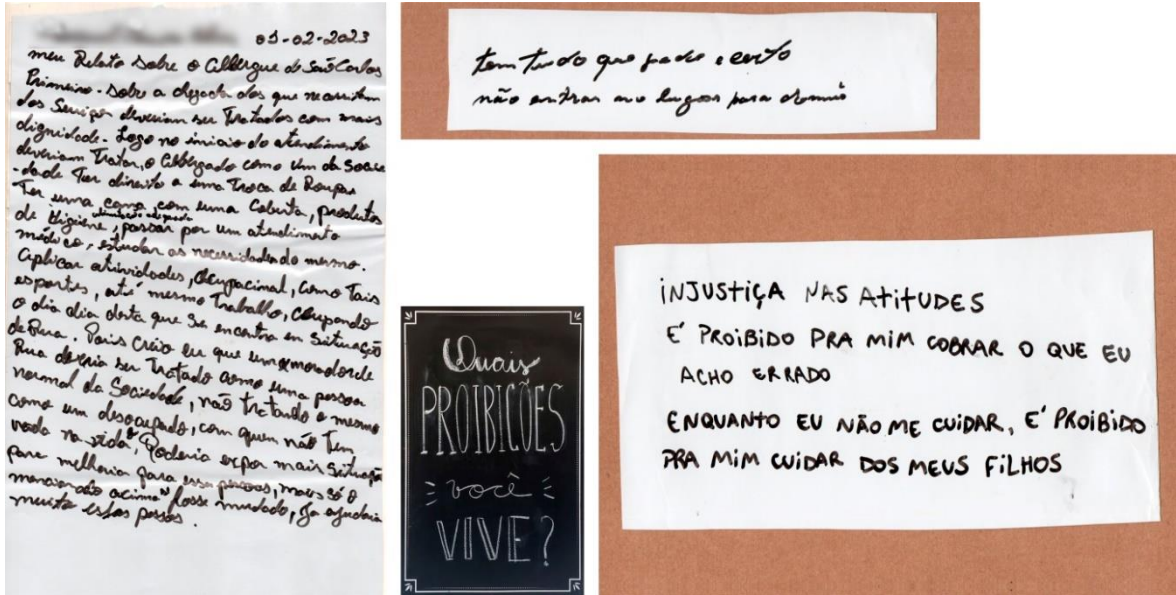 01-02-2023
meu Relato sobre o Albergue de São Carlos
Primeiro - sobre a chegada dos que necessitam
dos Serviços deveriam ser Tratados com mais
dignidade - Logo no inicio do atendimento
deveriam Tratar, o Albergado como um da Socie
-dade Ter direito a uma Troca de Roupa
Ter uma cama com uma Coberta, produtos
de Higiene, passar por um atendimento
médico, estudar as necessidades do mesmo.
Aplicar atividades, Ocupacinal, como Tais
esportes, até mesmo Trabalho, ocupando
o dia dia desta que se encontra em Situação
de Rua. Pois Creio eu que um morador de
Rua deveria ser Tratado como uma pessoa
normal da Sociedade, não tratando o mesmo
como um desocupado, com quem não Tem
nada na vida, Poderia expor mais Situação
para melhoria para essas pessoas, mais só o
acima fosse mudado, Ja ajudaria
muito estas pessoas.
tem tudo que pede e certo
não entrar no lugar para
Quais
PROIBIÇÕES
você
VIVE?
INJUSTIÇA NAS ATITUDES
É PROIBIDO PRA MIM COBRAR O QUE EU
ACHO ERRADO
ENQUANTO EU NÃO ME CUIDAR, É PROIBIDO
PRA MIM CUIDAR DOS MEUS FILHOS